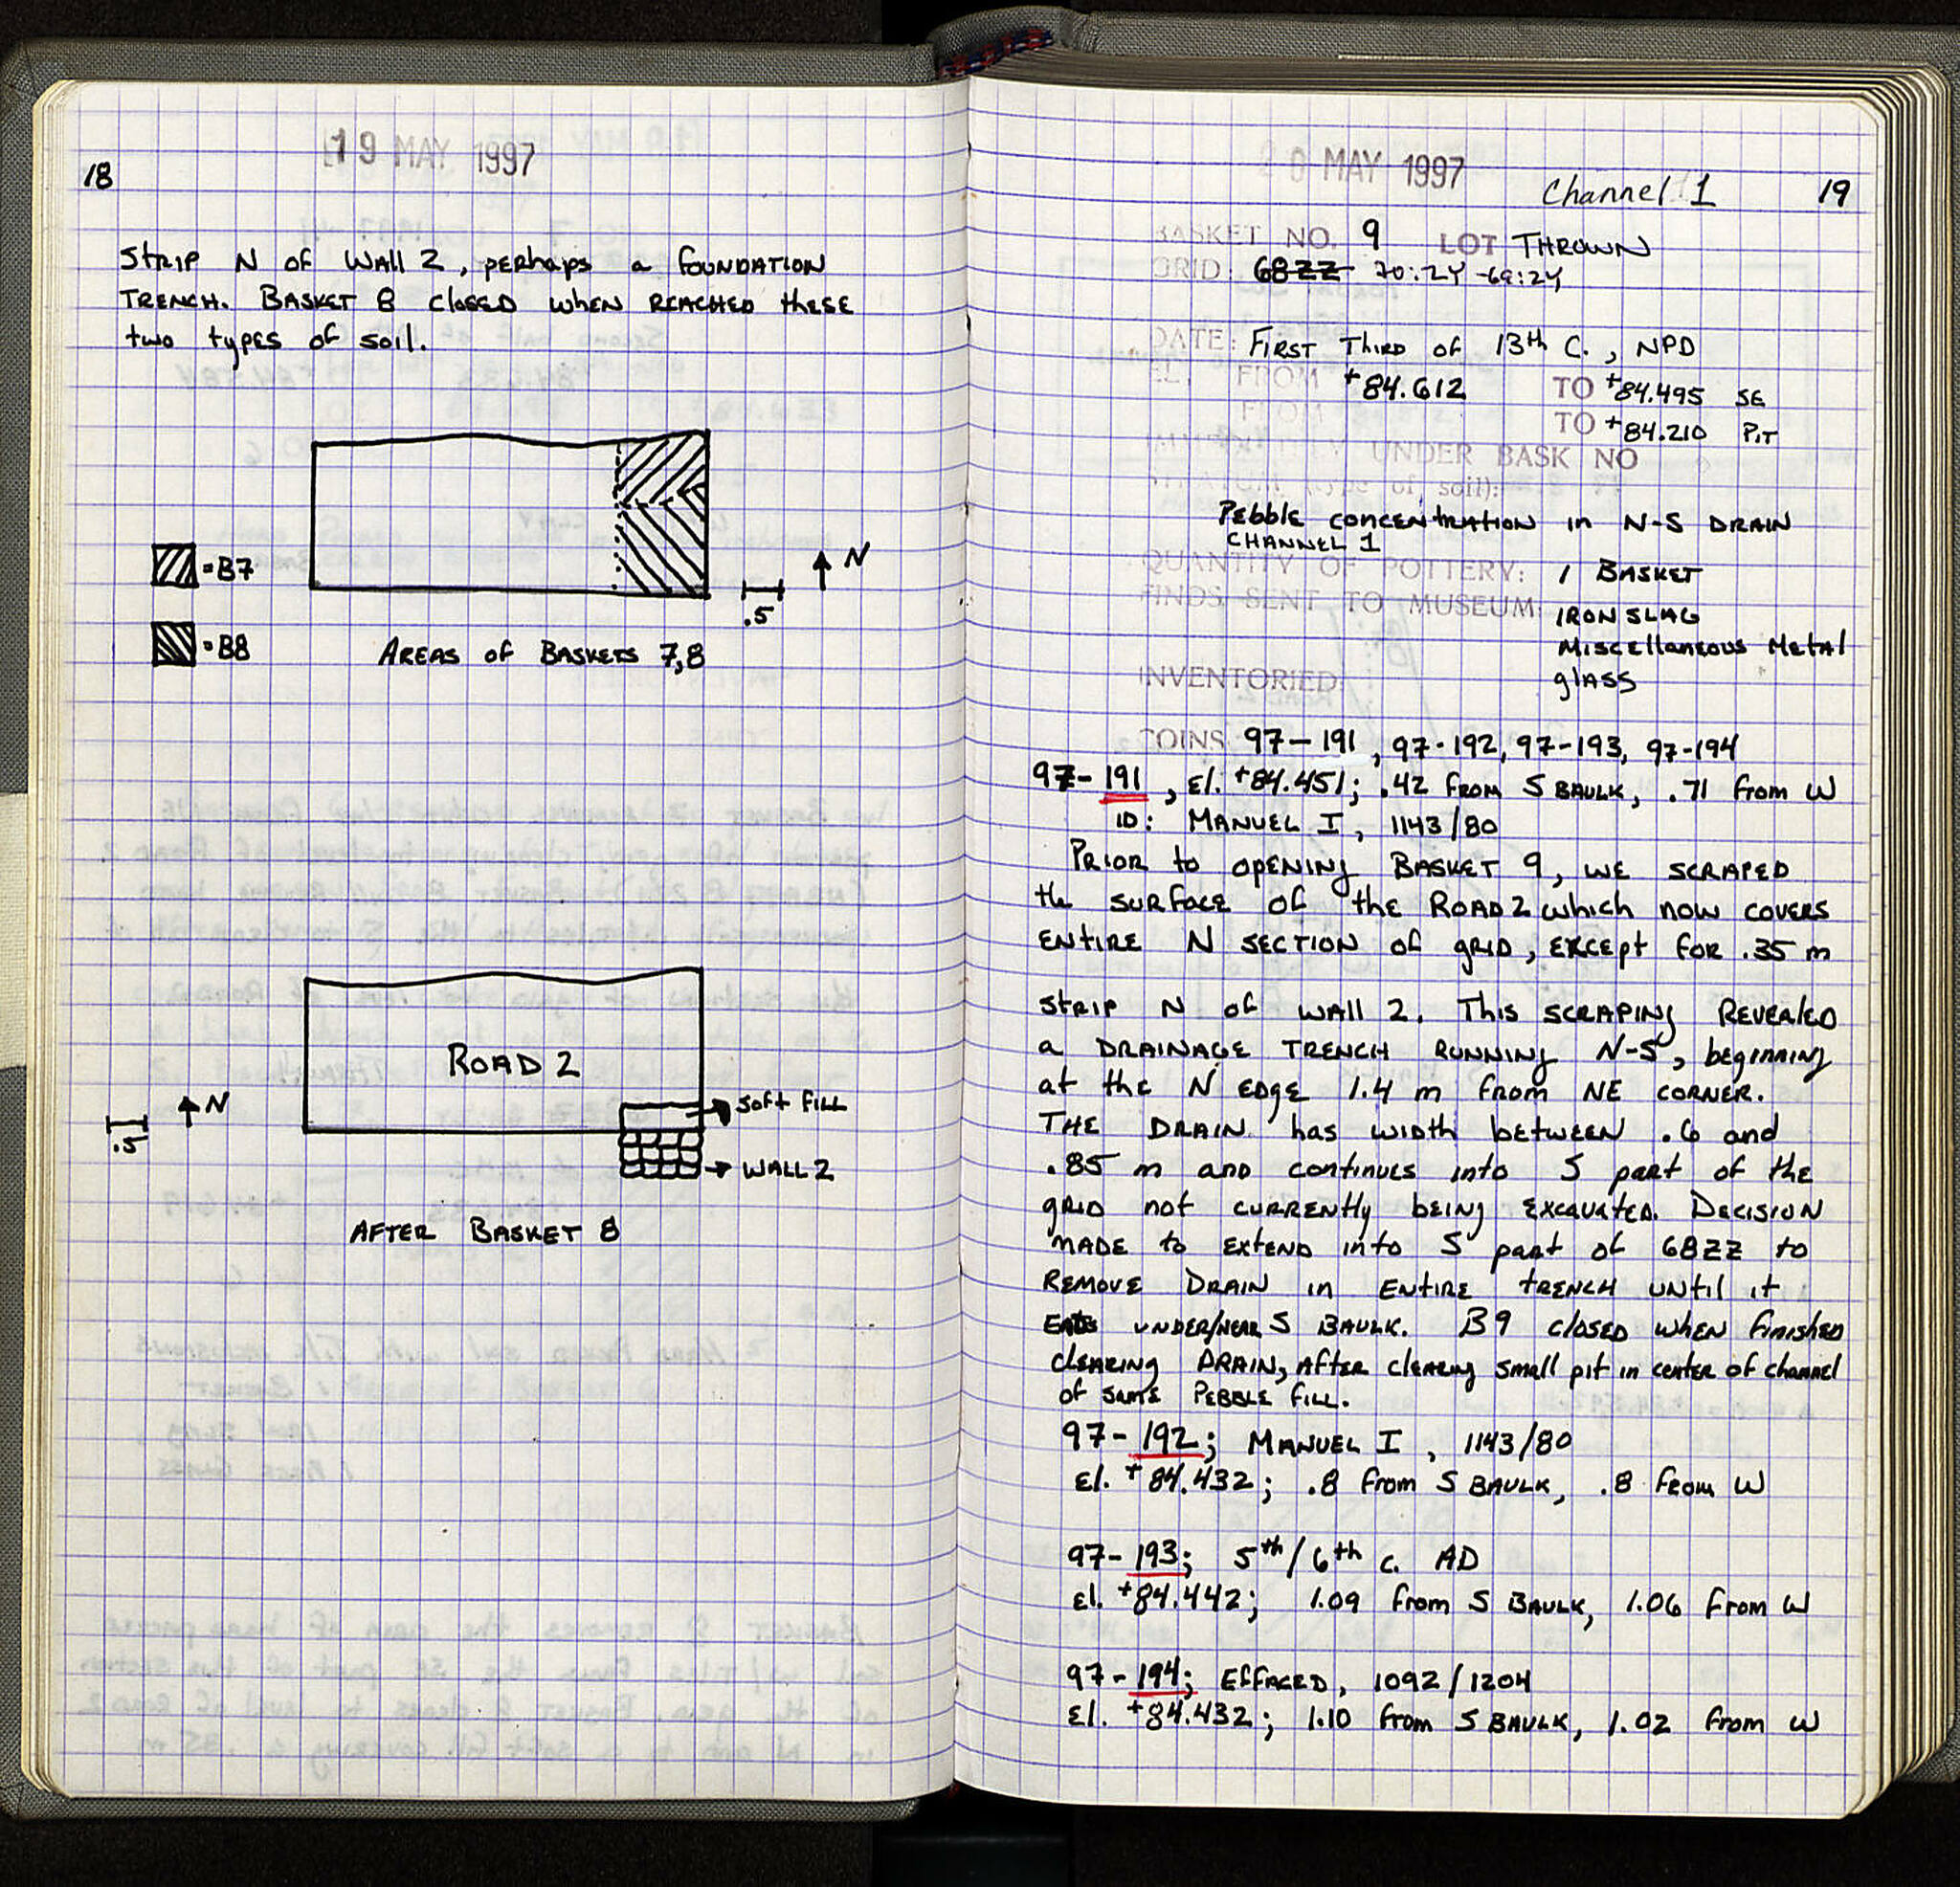 18
19 MAY 1997
STRIP N of WALL 2, perhaps a FOUNDATION
TRENCH. BASKET 8 closed when REACHED these
two types of soil.
= B7
= B8
N
.5
AREAS of BASKETS 7,8
ROAD 2
N
.5
soft fill
WALL 2
AFTER BASKET 8
20 MAY 1997
Channel 1
19
BASKET NO. 9 LOT THROWN
GRID: 68ZZ 70:24-69:24
DATE: FIRST THIRD of 13th C., NPD
EL: FROM +84.612 TO +84.495 SE
FROM TO +84.210 PIT
IMMEDIATELY UNDER BASK NO
STRATUM (type of soil):
Pebble concentration in N-S DRAIN
CHANNEL 1
QUANTITY OF POTTERY: 1 BASKET
FINDS SENT TO MUSEUM: IRON SLAG
Miscellaneous Metal
glass
INVENTORIED:
COINS 97-191, 97-192, 97-193, 97-194
97-191, El. +84.451; .42 from S BAULK, .71 from W
ID: MANUEL I, 1143/80
PRIOR to opening BASKET 9, we SCRAPED
the surface of the ROAD 2 which now covers
ENTIRE N SECTION of grid, except for .35 m
strip N of WALL 2. This scraping REVEALED
a DRAINAGE TRENCH RUNNING N-S, beginning
at the N EDGE 1.4 m from NE CORNER.
THE DRAIN has width between .6 and
.85 m and continues into S part of the
grid not currently being Excavated. Decision
MADE to extend into S part of 68ZZ to
REMOVE DRAIN in ENTIRE trench until it
ENDS UNDER/NEAR S BAULK. B9 closed when finished
clearing DRAIN, after clearing small pit in center of channel
of same PEBBLE FILL.
97-192; MANUEL I, 1143/80
El. +84.432; .8 from S BAULK, .8 from W
97-193; 5th/6th c. AD
El. +84.442; 1.09 from S BAULK, 1.06 from W
97-194; EFFACED, 1092/1204
El. +84.432; 1.10 from S BAULK, 1.02 from W